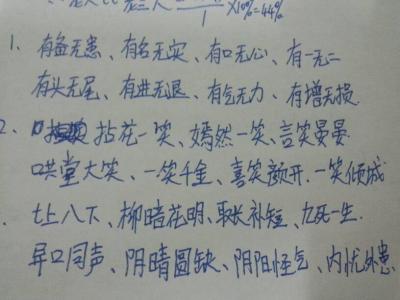 ×100%=44%
1、有备无患、有名无实、有口无心、有一无二
有头无尾、有进无退、有气无力、有增无损.
2、拈花一笑、嫣然一笑、言笑晏晏
哄堂大笑、一笑千金、喜笑颜开.一笑倾城
七上八下、柳暗花明、取长补短、九死一生.
异口同声、阴晴圆缺、阴阳怪气、内忧外患.